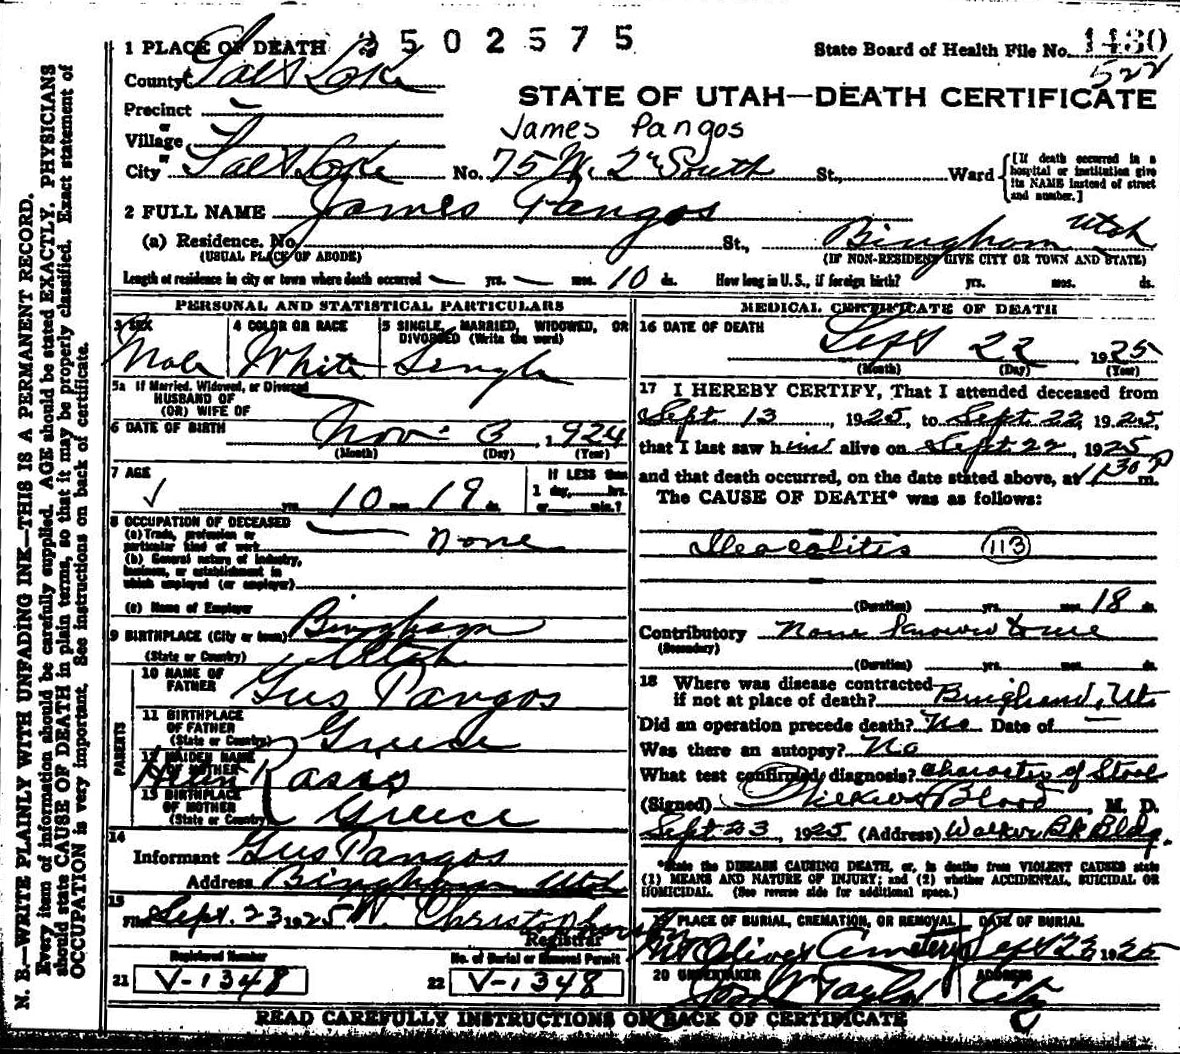 3502575
State Board of Health File No. 1430
522
STATE OF UTAH—DEATH CERTIFICATE
1 PLACE OF DEATH
County Salt Lake
Precinct
or
Village
or
City Salt Lake No. 75 W. 2" South St., Ward
[If death occurred in a hospital or institution give its NAME instead of street and number.]
James Pangos
2 FULL NAME James Pangos
(a) Residence. No. St., Bingham Utah
(USUAL PLACE OF ABODE) (IF NON-RESIDENT GIVE CITY OR TOWN AND STATE)
Length of residence in city or town where death occurred — yrs. — mos. 10 ds. How long in U.S., if foreign birth? yrs. mos. ds.
PERSONAL AND STATISTICAL PARTICULARS
3 SEX
Male
4 COLOR OR RACE
White
5 SINGLE, MARRIED, WIDOWED, OR DIVORCED (Write the word)
Single
5a If Married, Widowed, or Divorced
HUSBAND OF
(OR) WIFE OF
6 DATE OF BIRTH Nov. 3, 1924
(Month) (Day) (Year)
7 AGE
yrs. 10 mos. 19 ds.
If LESS than
1 day, hrs.
or min.?
8 OCCUPATION OF DECEASED
(a) Trade, profession or
particular kind of work None
(b) General nature of industry,
business, or establishment in
which employed (or employer)
(c) Name of Employer
9 BIRTHPLACE (City or town) Bingham
(State or Country) Utah
PARENTS
10 NAME OF
FATHER Gus Pangos
11 BIRTHPLACE
OF FATHER
(State or Country) Greece
12 MAIDEN NAME
OF MOTHER Rasos
13 BIRTHPLACE
OF MOTHER
(State or Country) Greece
14
Informant Gus Pangos
Address Bingham Utah
15
Filed Sept. 23 1925 W. Christopherson
Registrar
Registered Number
21 V-1348
No. of Burial or Removal Permit
22 V-1348
MEDICAL CERTIFICATE OF DEATH
16 DATE OF DEATH
Sept 22, 1925
(Month) (Day) (Year)
17 I HEREBY CERTIFY, That I attended deceased from
Sept 13, 1925, to Sept 22, 1925,
that I last saw him alive on Sept 22, 1925
and that death occurred, on the date stated above, at 11:30 P m.
The CAUSE OF DEATH* was as follows:
Ileocolitis 113
(Duration) yrs. mos. 18 ds.
Contributory None known to me
(Secondary)
(Duration) yrs. mos. ds.
18 Where was disease contracted
if not at place of death? Bingham, Ut
Did an operation precede death? No Date of —
Was there an autopsy? No
What test confirmed diagnosis? Character of Stool
(Signed) Blood, M. D.
Sept 23, 1925 (Address) Walker Bk Bldg.
*State the DISEASE CAUSING DEATH, or, in deaths from VIOLENT CAUSES state
(1) MEANS AND NATURE OF INJURY; and (2) whether ACCIDENTAL, SUICIDAL OR
HOMICIDAL. (See reverse side for additional space.)
19 PLACE OF BURIAL, CREMATION, OR REMOVAL
Mt Olivet Cemetery
DATE OF BURIAL
Sept 23 1925
20 UNDERTAKER
Jos W Taylor
ADDRESS
City
READ CAREFULLY INSTRUCTIONS ON BACK OF CERTIFICATE
N. B.—WRITE PLAINLY WITH UNFADING INK—THIS IS A PERMANENT RECORD.
Every item of information should be carefully supplied. AGE should be stated EXACTLY. PHYSICIANS
should state CAUSE OF DEATH in plain terms, so that it may be properly classified. Exact statement of
OCCUPATION is very important. See instructions on back of certificate.